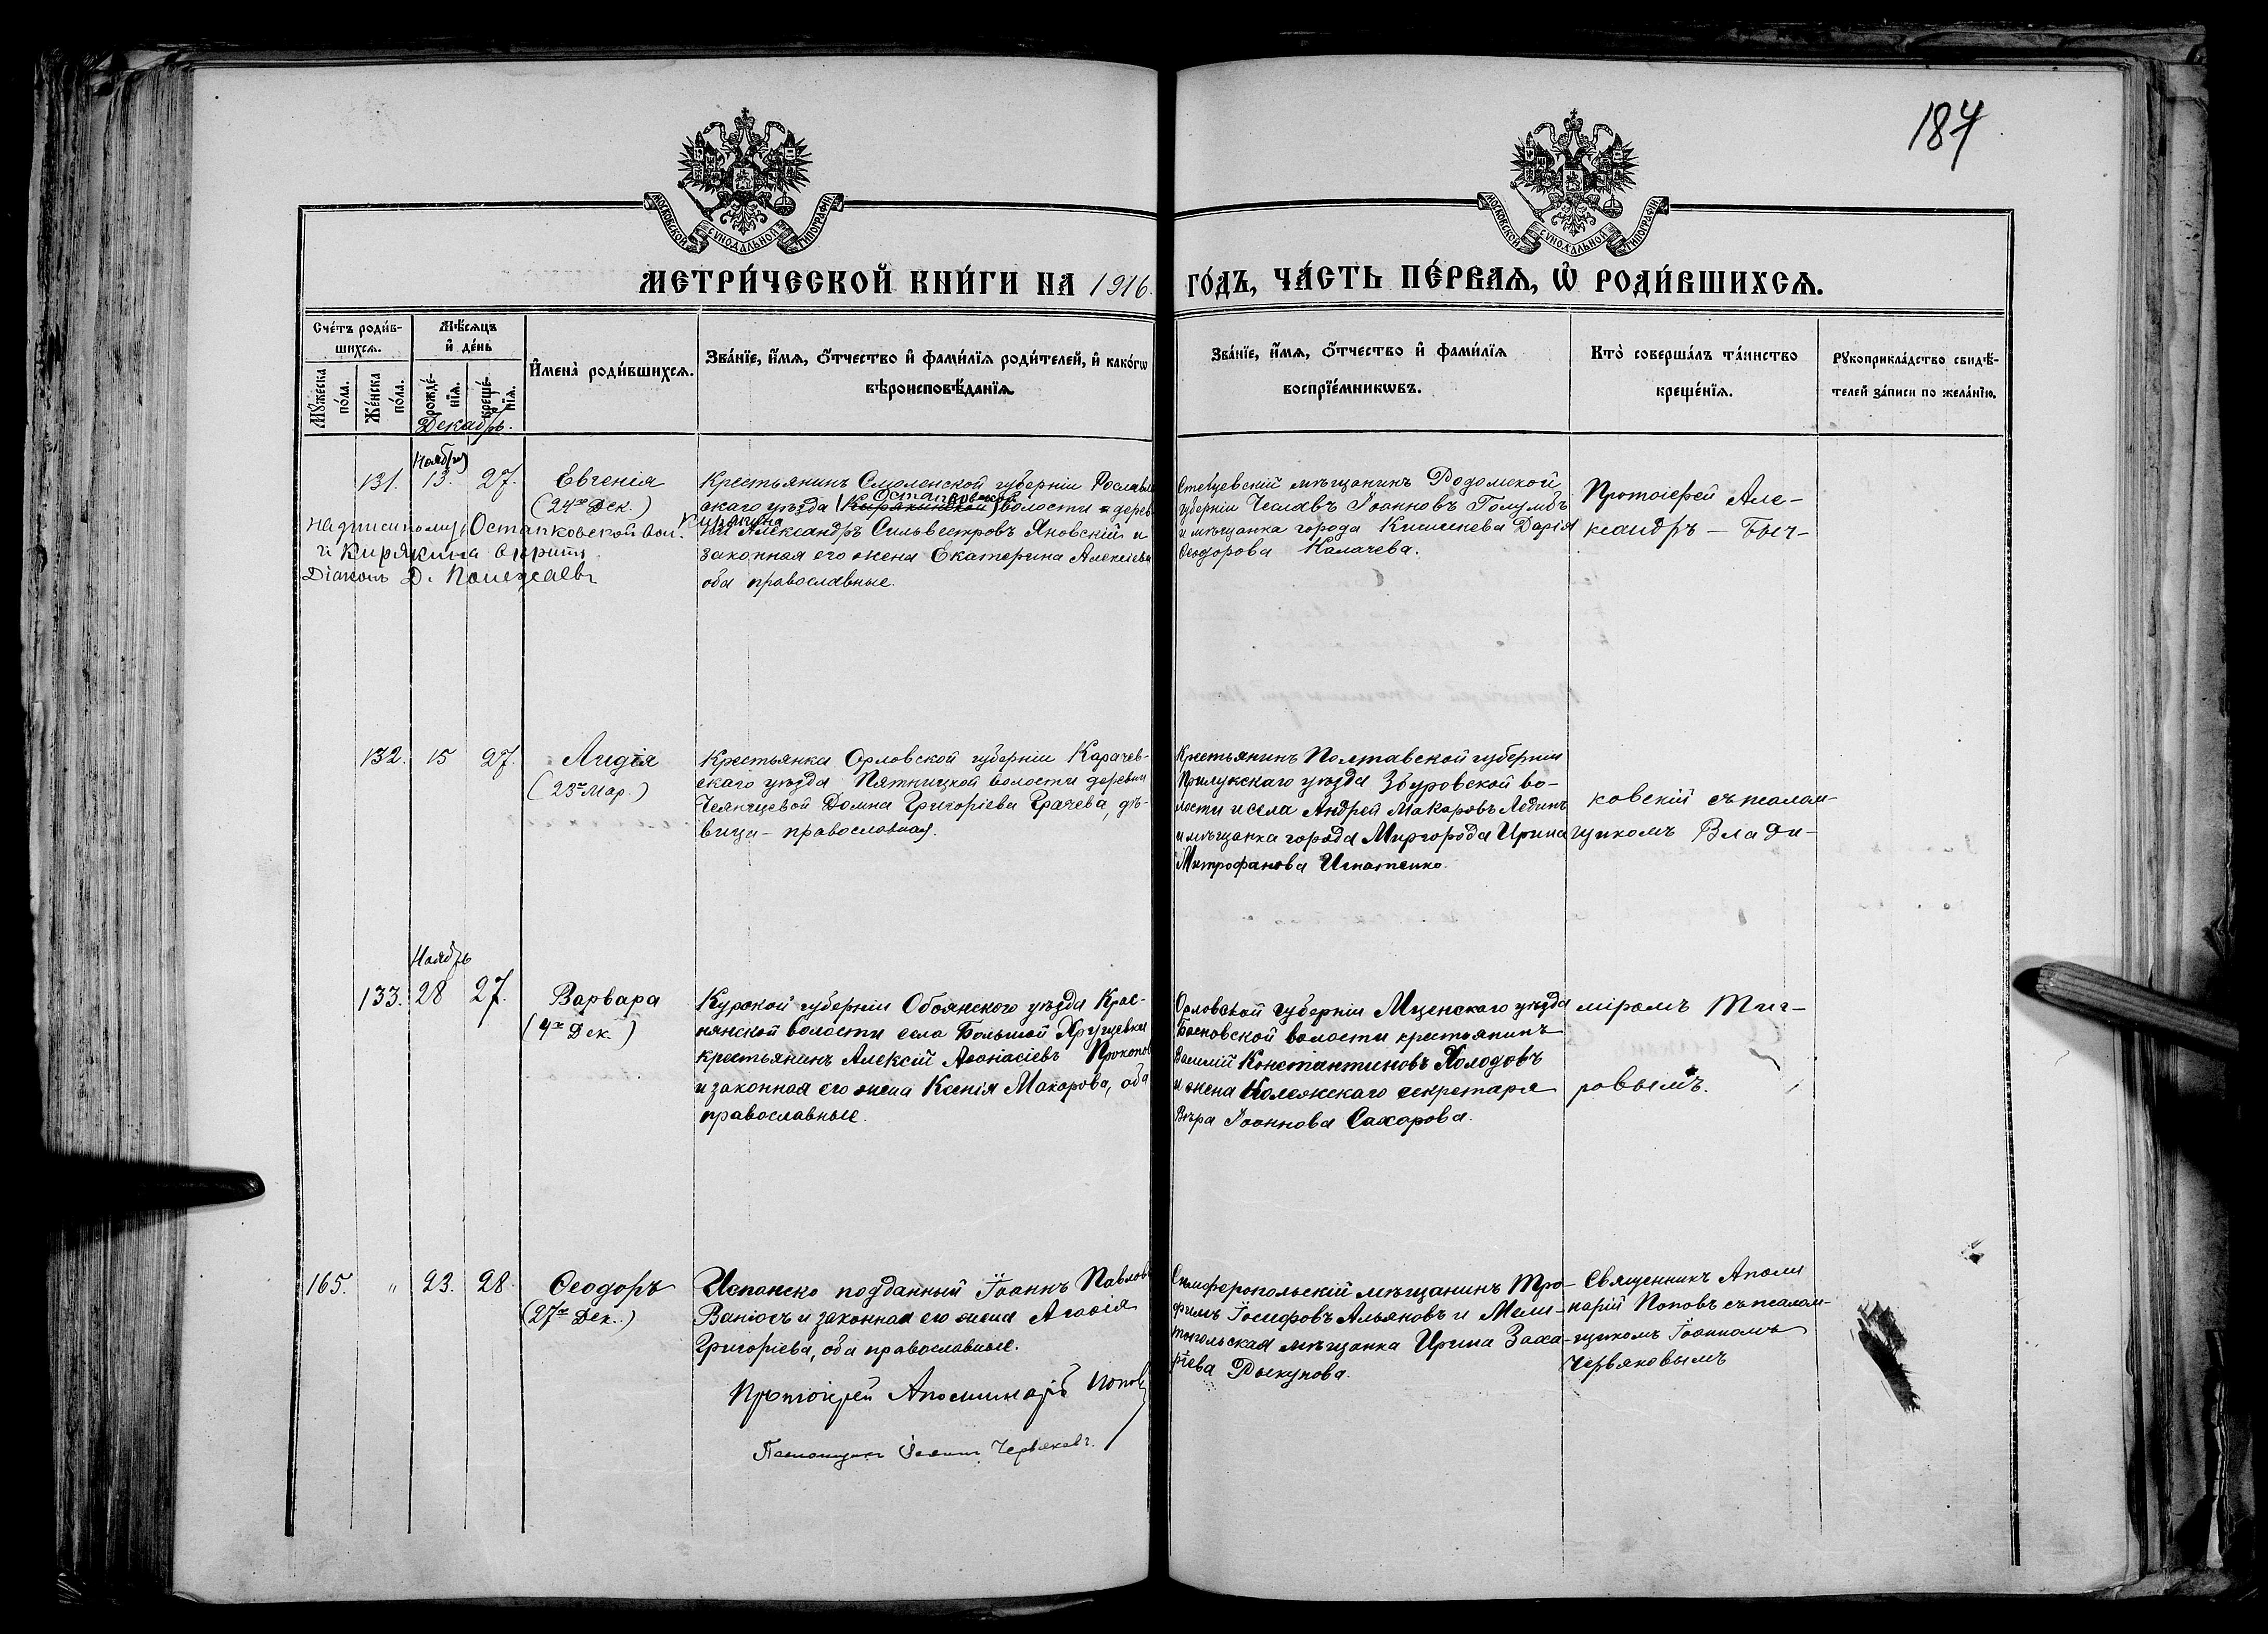 187
МОСКОВСКОЙ СУНОДАЛЬНОЙ ТИПОГРАФІИ
МОСКОВСКОЙ СУНОДАЛЬНОЙ ТИПОГРАФІИ
МЕТРИ́ЧЕСКОЙ КНИ́ГИ НА 1916 ГО́ДЪ, ЧА́СТЬ ПЕ́РВАѦ, Ѡ РОДИ́ВШИХСѦ.
Сче́тъ роди́в-
шихсѧ.
Мꙋ́жеска по́ла.
Же́нска по́ла.
Мѣ́сѧцъ
и де́нь
рожде́-
нїѧ.
креще́-
нїѧ.
Декабрь.
Имена̀ роди́вшихсѧ.
Зва́нїе, и́мѧ, ѻ́тчество и фами́лїѧ роди́телей, и како́гѡ
вѣроисповѣ́данїѧ.
Зва́нїе, и́мѧ, ѻ́тчество и фами́лїѧ
воспрїе́мникѡвъ.
Кто̀ соверша́лъ та́инство
креще́нїѧ.
Рꙋкоприкла́дство свидѣ́-
телей за́писи по жела́нїю.
Ноября
131. 13. 27. Евгенія
(24го Дек.)
Крестьянинъ Смоленской губерніи Рославль
Остапковской
скаго уѣзда (Кирякинской) волости дерев
Кирякина
ни Александръ Сильвестровъ Яновскій и
законная его жена Екатерина Алексіева
оба православные.
Надписи по Остапковской вол.
и Кирякина вѣрить
Діаконъ Д.
мѣщанинъ Родомской
губерніи Чеславъ Іоанновъ Голумбъ
и мѣщанка города Кишинева Дарія
Ѳеодорова Калачева.
Протоіерей Але-
ксандръ — Быч-
132. 15 27. Лидія
(23го Мар.)
Крестьянка Орловской губерніи Карачев-
скаго уѣзда Пятницкой волости деревни
Домна Григоріева Грачева, дѣ-
вица — православная.
Крестьянинъ Полтавской губерніи
Прилукскаго уѣзда Згуровской во-
лости и села Андрей Макаровъ
и мѣщанка города Миргорода Ирина
Митрофанова Игнатенко.
ковскій съ псалом-
щикомъ Влади-
Ноябрь
133. 28 27. Варвара
(4го Дек.)
Курской губерніи Обоянскаго уѣзда Крас-
нянской волости села Большой Хрущевки
крестьянинъ Алексій Аѳанасіевъ Прокопов
и законная его жена Ксенія Макарова, оба
православные.
Орловской губерніи Мценскаго уѣзда
волости крестьянинъ
Василій Константиновъ Холодовъ
и жена Коллежскаго секретаря
Вѣра Іоаннова Сахарова.
міромъ Тиг-
ровымъ.
165. " 23. 28. Ѳеодоръ
(27го Дек.)
Испанско подданный Іоаннъ Павловъ
и законная его жена Агаѳія
Григоріева, оба православные.
Симферопольскій мѣщанинъ Тро-
фимъ Іосифовъ Альяновъ и Мели-
топольская мѣщанка Ирина Заха-
ріева Рыкунова.
Священникъ Аполи
нарій Поповъ съ псалом-
щикомъ Іоанномъ
Червяковымъ
Протоіерей Аполлинарій Поповъ
Псаломщикъ Іоаннъ Червяковъ.